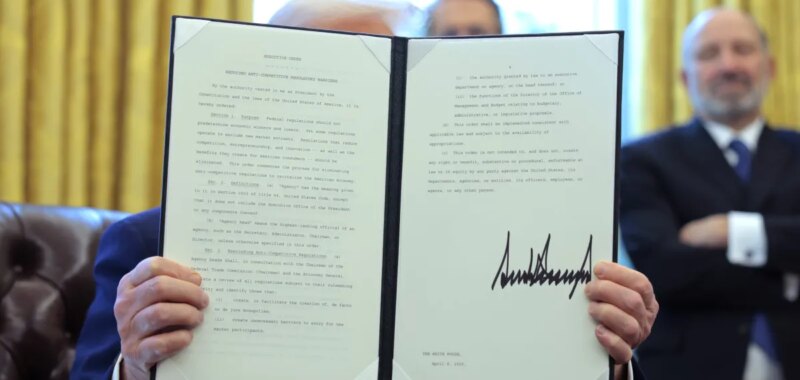 EXECUTIVE ORDER
- - - - - - -
REDUCING ANTI-COMPETITIVE REGULATORY BARRIERS
By the authority vested in me as President by the
Constitution and the laws of the United States of America, it is
hereby ordered:
Section 1. Purpose. Federal regulations should not
predetermine economic winners and losers. Yet some regulations
operate to exclude new market entrants. Regulations that reduce
competition, entrepreneurship, and innovation -- as well as the
benefits they create for American consumers -- should be
eliminated. This order commences the process for eliminating
anti-competitive regulations to revitalize the American economy.
Sec. 2. Definitions. (a) "Agency" has the meaning given
to it in section 3502 of title 44, United States Code, except
that it does not include the Executive Office of the President
or any components thereof.
(b) "Agency head" means the highest-ranking official of an
agency, such as the Secretary, Administrator, Chairman, or
Director, unless otherwise specified in this order.
Sec. 3. Rescinding Anti-Competitive Regulations. (a)
Agency heads shall, in consultation with the Chairman of the
Federal Trade Commission (Chairman) and the Attorney General,
a review of all regulations subject to their rulemaking
and identify those that:
(i) create, or facilitate the creation of, de facto
or de jure monopolies;
(ii) create unnecessary barriers to entry for new
market participants;
(i) the authority granted by law to an executive
department or agency, or the head thereof; or
(ii) the functions of the Director of the Office of
Management and Budget relating to budgetary,
administrative, or legislative proposals.
(b) This order shall be implemented consistent with
applicable law and subject to the availability of
appropriations.
(c) This order is not intended to, and does not, create
any right or benefit, substantive or procedural, enforceable at
law or in equity by any party against the United States, its
departments, agencies, or entities, its officers, employees, or
agents, or any other person.
THE WHITE HOUSE,
April 9, 2025.